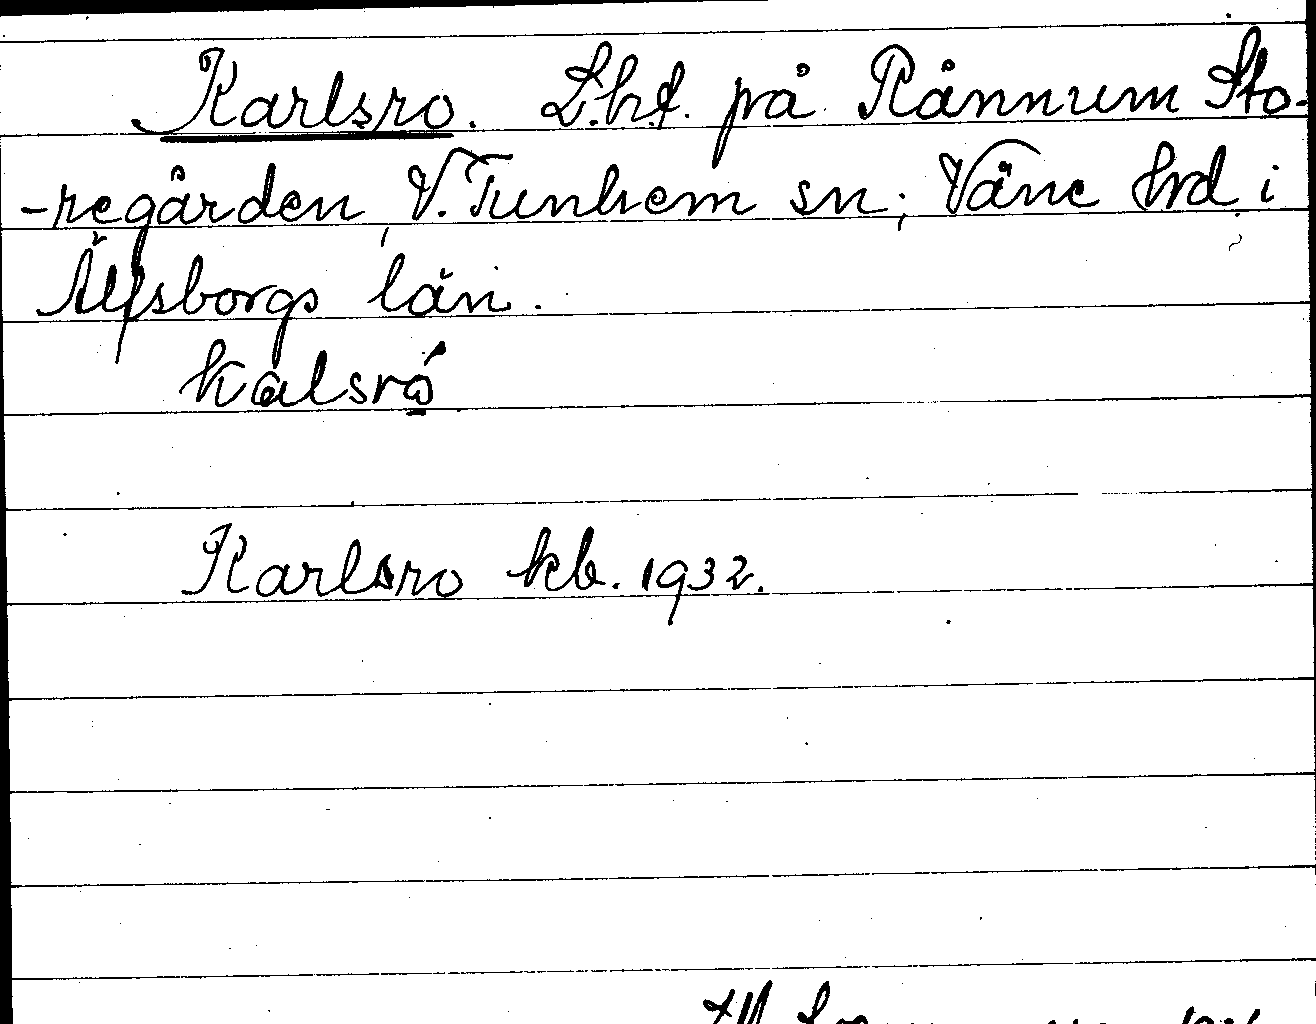 Karlsro. Lht. på Rånnum Sto-
-regården, V. Tunhem sn; Väne hd i
Älfsborgs län.
kalsró
Karlsro kb. 1932.